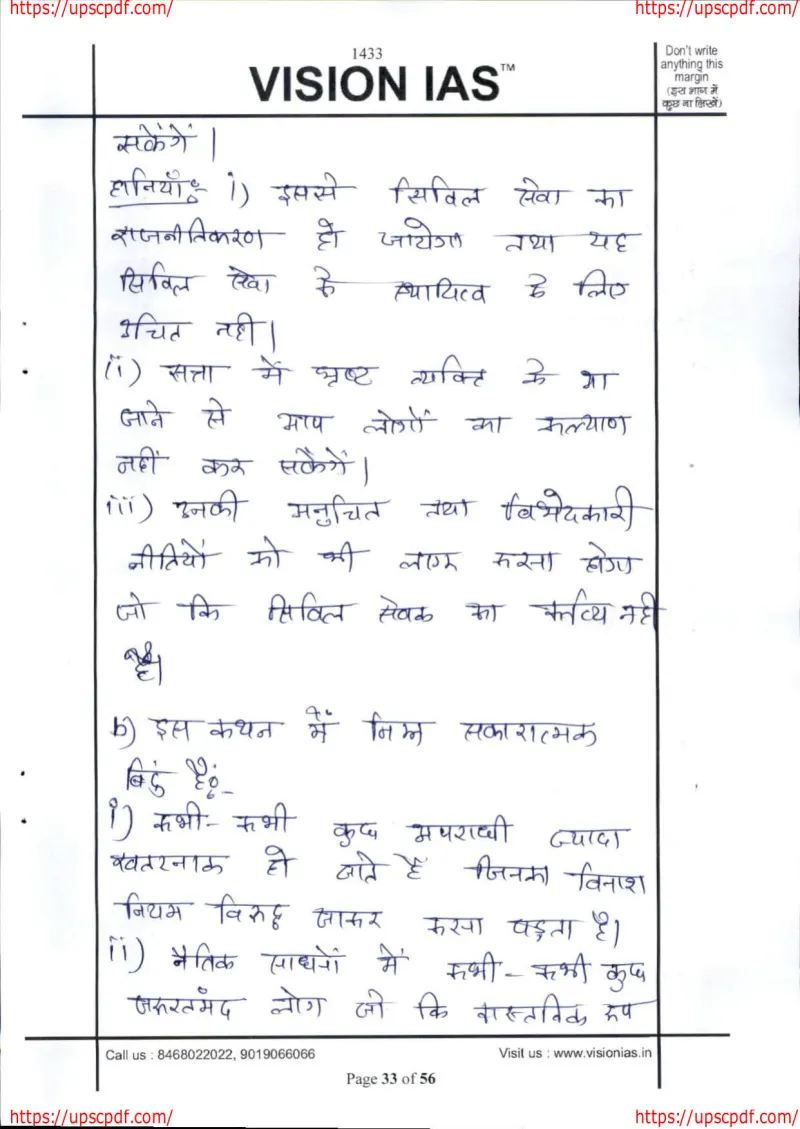 https://upscpdf.com/ https://upscpdf.com/
1433
VISION IAS™
Don't write
anything this
margin
(इस भाग में
कुछ ना लिखें)
सकेंगें |
हानियाँ:- i) इससे सिविल सेवा का
राजनीतिकरण हो जायेगा तथा यह
सिविल सेवा के स्थायित्व के लिए
उचित नही |
ii) सत्ता में भ्रष्ट व्यक्ति के आ
जाने से आप लोगों का कल्याण
नहीं कर सकेंगें |
iii) उनकी अनुचित तथा विभेदकारी
नीतियों को भी लागू करना होगा
जो कि सिविल सेवक का कर्तव्य नही
है।
b) इस कथन में निम्न सकारात्मक
बिंदु है:-
i) कभी- कभी कुछ अपराधी ज्यादा
खतरनाक हो जाते हैं जिनका विनाश
नियम विरुद्ध जाकर करना पड़ता है।
ii) नैतिक साधनों में कभी- कभी कुछ
जरुरतमंद लोग जो कि वास्तविक रुप
Call us : 8468022022, 9019066066 Visit us : www.visionias.in
Page 33 of 56
https://upscpdf.com/ https://upscpdf.com/